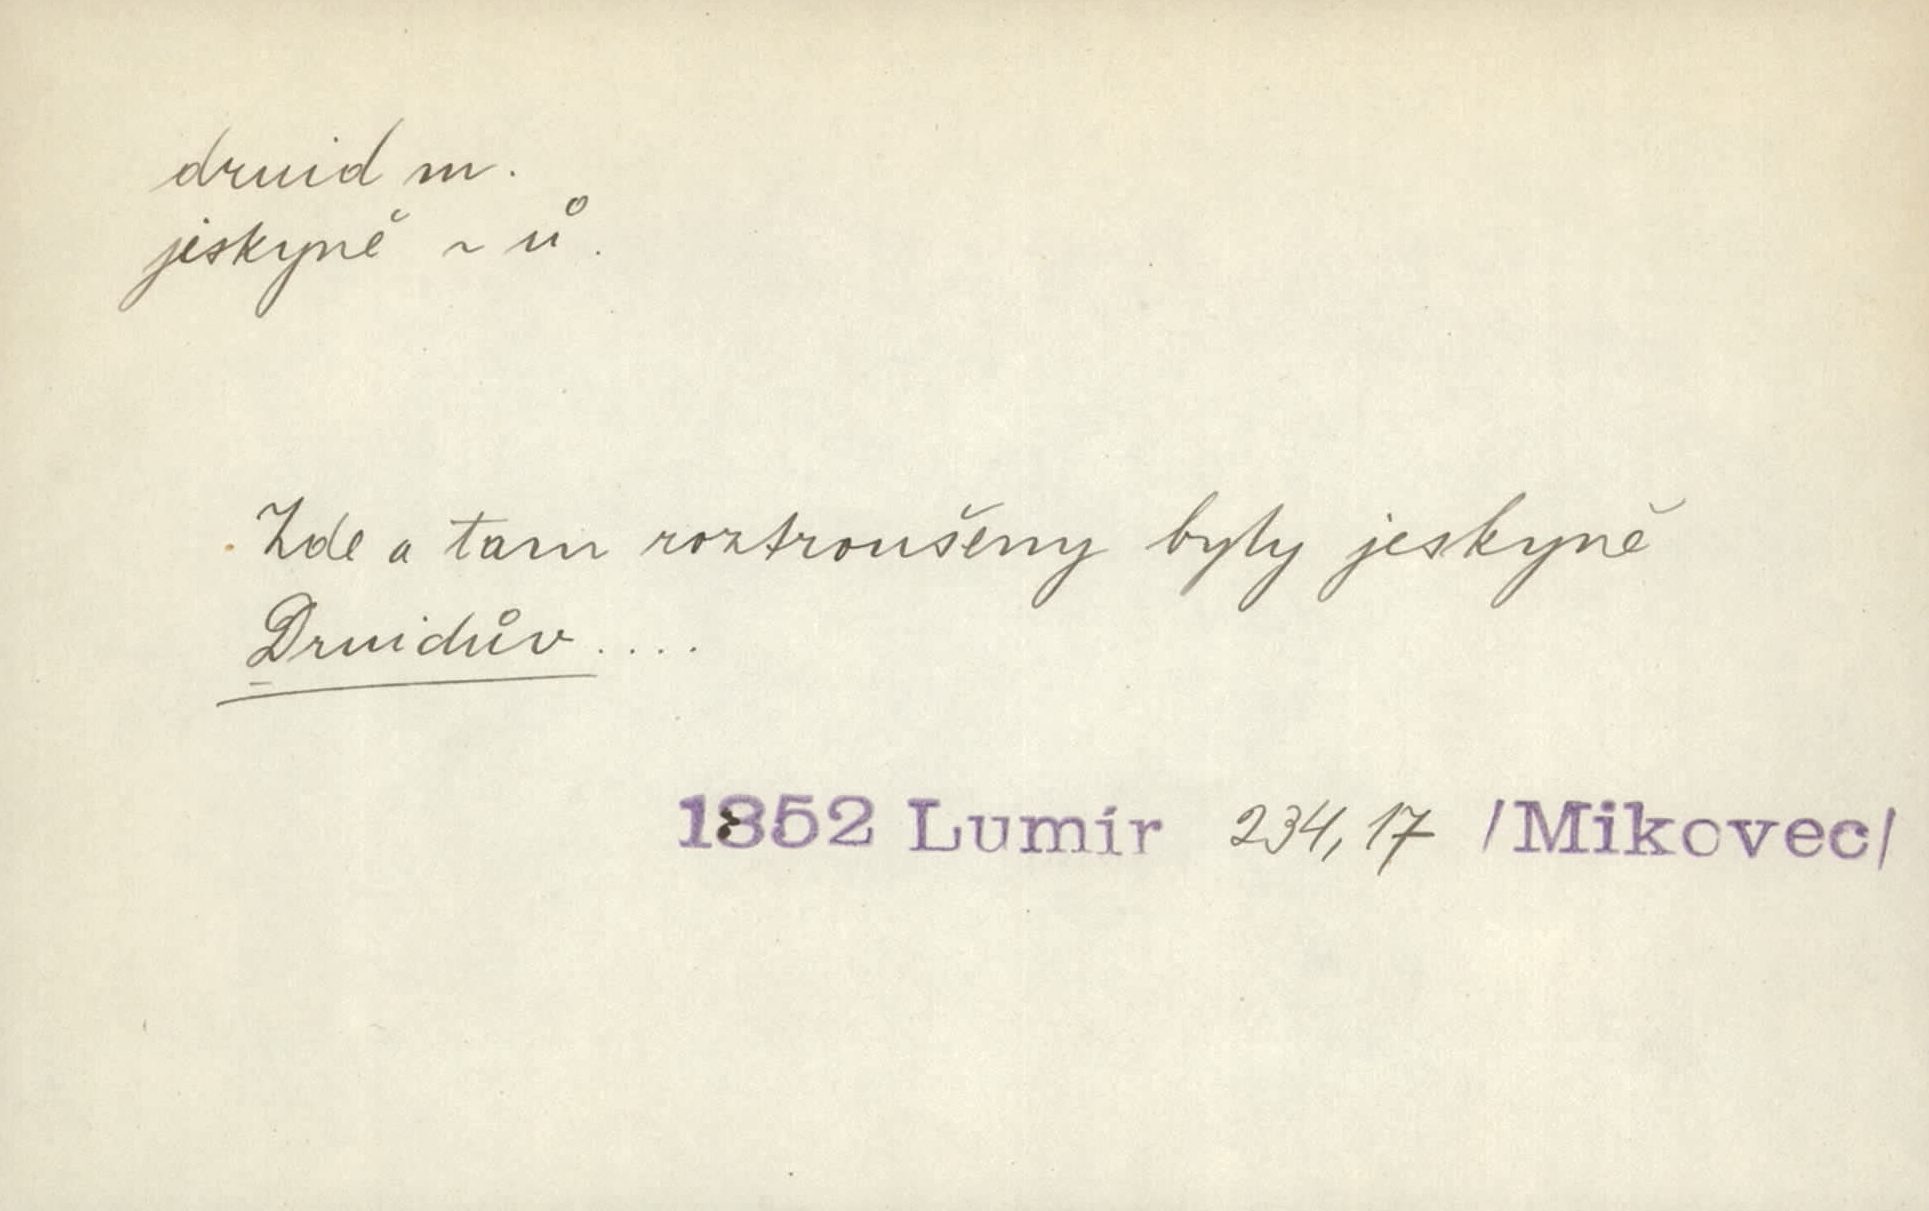 druid m.
jeskyně ~ ů.
Zde a tam roztroušeny byly jeskyně
Druidův....
1852 Lumír 234,17 /Mikovec/